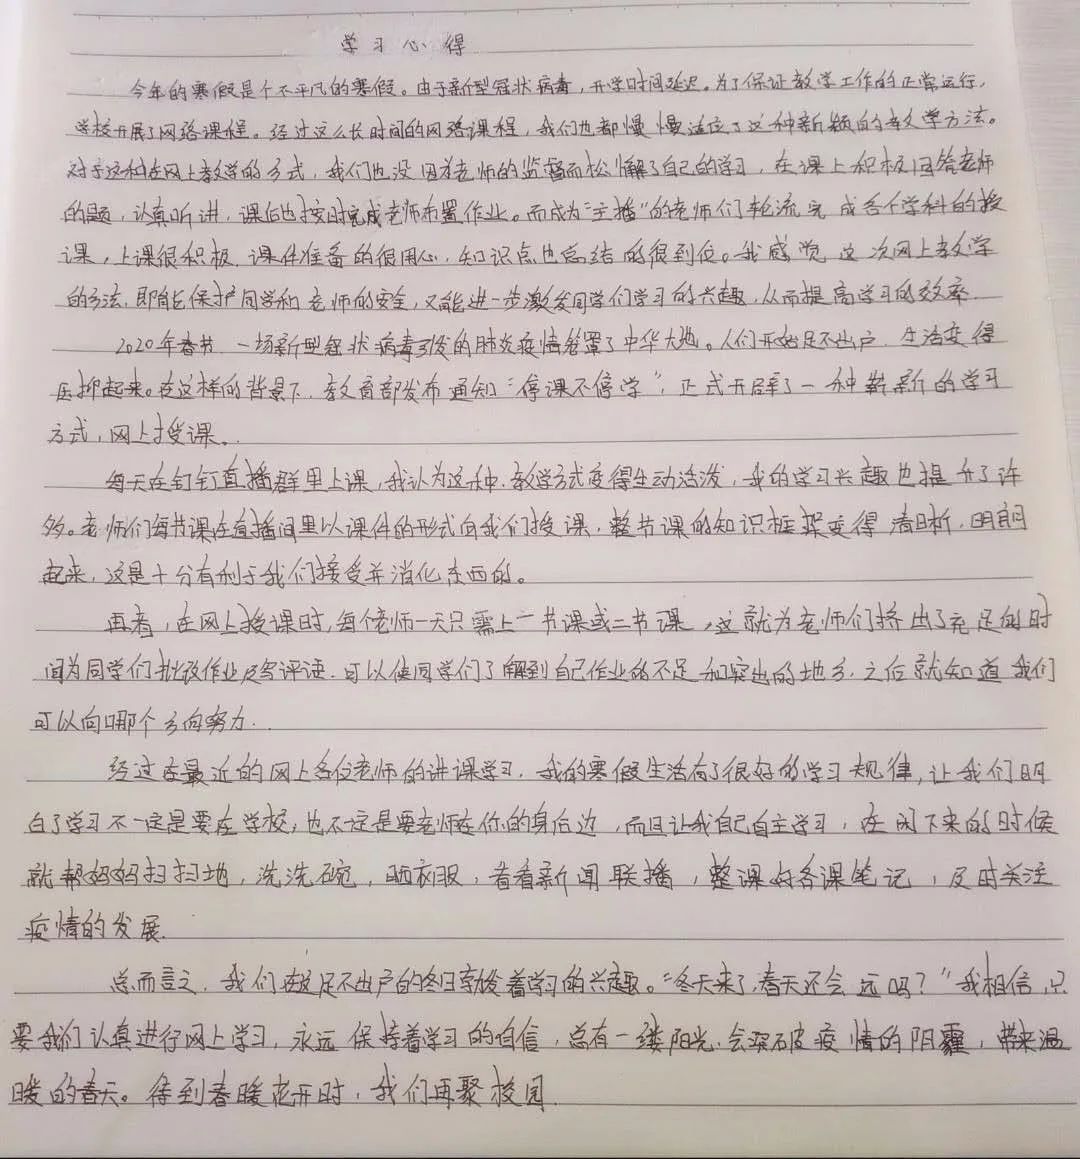 学习心得
今年的寒假是个不平凡的寒假。由于新型冠状病毒，开学时间延迟。为了保证教学工作的正常运行，
学校开展了网络课程。经过这么长时间的网络课程，我们也都慢慢适应了这种新颖的教学方法。
对于这种在网上教学的方式，我们也没因为老师的监督而松懈了自己的学习，在课上积极回答老师
的题，认真听讲，课后也按时完成老师布置作业。而成为“主播”的老师们轮流完成各个学科的授
课，上课很积极，课件准备的很用心，知识点也总结的很到位。我感觉这次网上教学
的方法，即能保护同学和老师的安全，又能进一步激发同学们学习的兴趣，从而提高学习的效率.
2020年春节，一场新型冠状病毒引发的肺炎疫情笼罩了中华大地。人们开始足不出户，生活变得
压抑起来。在这样的背景下，教育部发布通知“停课不停学”，正式开辟了一种崭新的学习
方式，网上授课。
每天在钉钉直播群里上课，我认为这种教学方式变得生动活泼，我的学习兴趣也提升了许
多。老师们每节课在直播间里以课件的形式向我们授课，整节课的知识框架变得清晰，明朗
起来，这是十分有利于我们接受并消化东西的。
再者，在网上授课时，每个老师一天只需上一节课或二节课，这就为老师们挤出了充足的时
间为同学们批改作业及写评语，可以使同学们了解到自己作业的不足和突出的地方，之后就知道我们
可以向哪个方向努力.
经过在最近的网上各位老师的讲课学习，我的寒假生活有了很好的学习规律，让我们明
白了学习不一定是要在学校，也不一定是要老师在你的身后边，而且让我自己自主学习，在闲下来的时候
就帮妈妈扫扫地，洗洗碗，晒衣服，看看新闻联播，整课好各课笔记，及时关注
疫情的发展.
总而言之，我们在这足不出户的冬日勃发着学习的兴趣。“冬天来了，春天还会远吗？”我相信，只
要我们认真进行网上学习，永远保持着学习的自信，总有一缕阳光，会突破疫情的阴霾，带来温
暖的春天。待到春暖花开时，我们再聚校园.